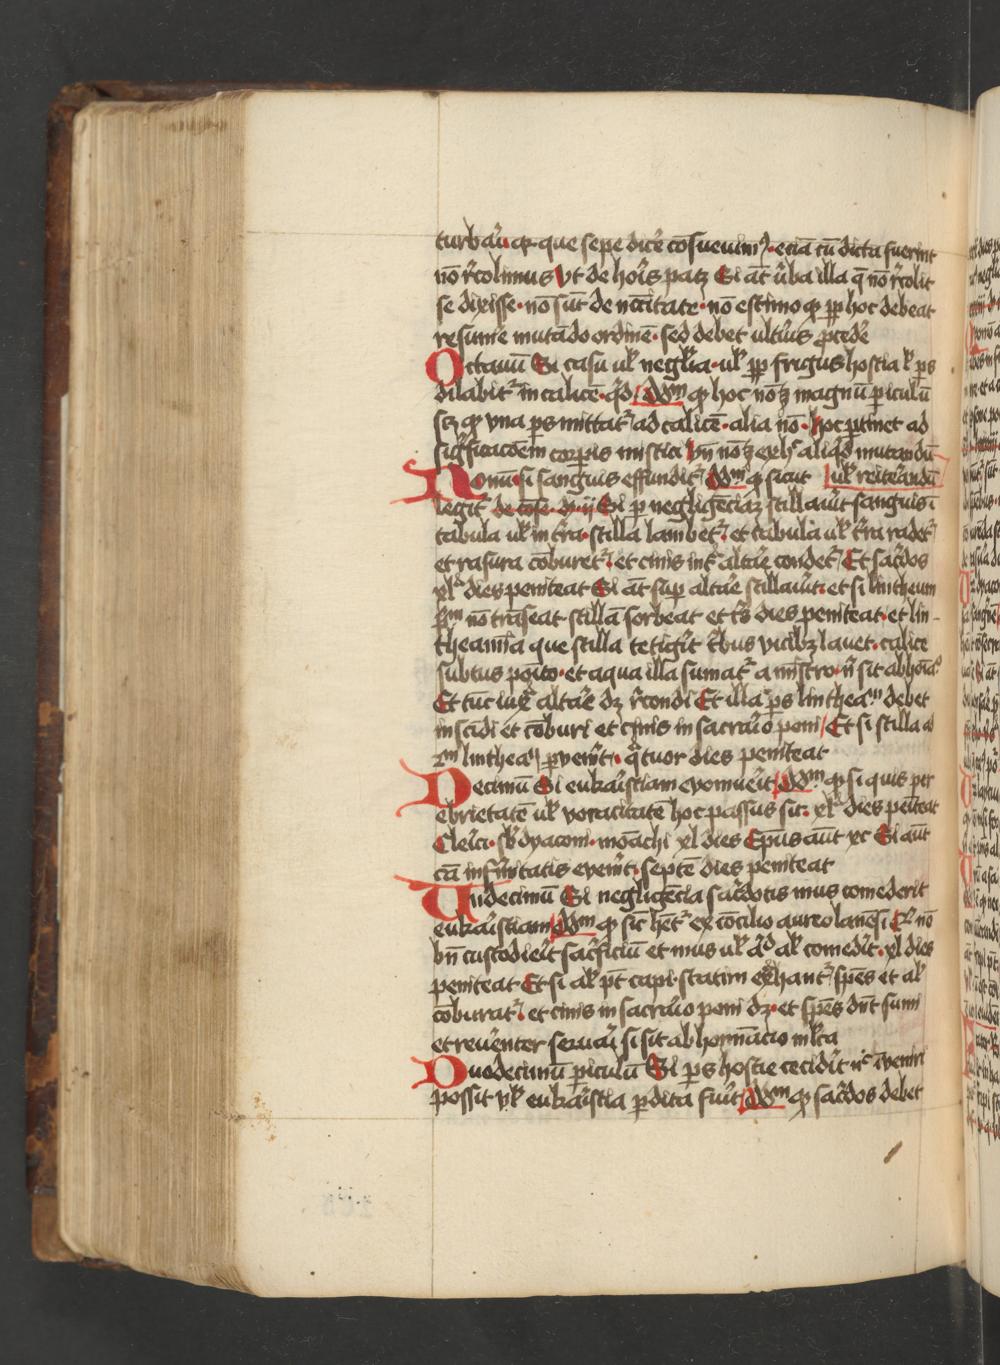 turbaṙ q̄ que sepe dicẽ cõsueuim⁹ ecia cũ dicta fuerint
nõ r̃colimus Vt de horis patz Si aũt v̓ba illa q̃ nõ r̃colit
se dixisse · nõ sũt de nc̃citate · nõ estimo qp̱ ꝓp hoc debeat
resume mutãdo ordinẽ · sed debet ulti᷒us ꝓcedẽ
Octauũ Si casu ul̓ negl̓ia · ul̓ ꝓp frigus hostia l̓ ps
dilabit᷑ in calicẽ · qp̱ hoc nõ ẽ magnũ ꝑiculũ
scz qp̱ vna ps mittat᷑ ad calicẽ · alia nõ · hoc ꝑtinet ad
sig̃ficacõem corꝑis mistici hñ nõ aliqd̓ mutandũ
Nonũ · si sanguis effundit᷑ qp̱ sicut ul̓ reiterandũ
legit᷑ de cõse · dı · ij Si ꝑ negligẽciaz stillau̓it sanguis ĩ
tabula ul̓ in t̃ra · stilla lambet᷑ · et tabula ul̓ t̃ra radet᷑
et rasura cõburet᷑ · et cinis int̓ altaẽ condet᷑ Et sac̓dos
xl᷑ dies peniteat Si aũt sup̱ altaẽ stillau̓it · et si lintheum
nõ trãseat · stillã sorbeat et t̃s dies peniteat · et lin-
theamĩa que stilla tetigit t̓bus vicibz lauet · calice
subtus po̓ito · et aqua illa sumat᷑ a mĩstro · n̓ sit abhoĩa᷑
Et tũc iux᷑ altaẽ dz r̃condi Et illa ps lintheaᵐ debet
inscĩdi et cõburi et cinis in sacr̓io poni / Et si stilla ad
lintheaᵐ ꝑuenit · q̃tuor dies peniteat
Decimũ Si eukaristiam euomuerit qp̱ si quis per
ebrietatẽ ul̓ voracitatẽ hoc passus sit · xl᷑ dies peniteat
Cleici · sb̓dyaconi · moãchi xl dies Ep̃us aũt xc Si aũt
cã infirmitatis euenit · septẽ dies peniteat
Undecimũ Si negligẽcia sac̓dotis mus comederit
eukaristiam qp̱ sic̓ het᷑ ex cõcilio aureolanẽsi nõ
bñ custodierit sac̓ficiũ et mus ul̓ aĩal̓ comedit · xl dies
peniteat Et si al̓ pt̃ capi · statim exhant᷑ · sp̃es et al̓
cõburat᷑ · et cinis in sacr̓io poni dz · et sp̃es dñt sumi
et reu̓enter seruari si sit abhominacio ml̓ta
Duodecimũ ꝑiculũ Si ps hostie cecidit nc̓ ĩueniri
possit ul̓ eukaristia ꝑdita fuit qp̱ sac̓dos debet